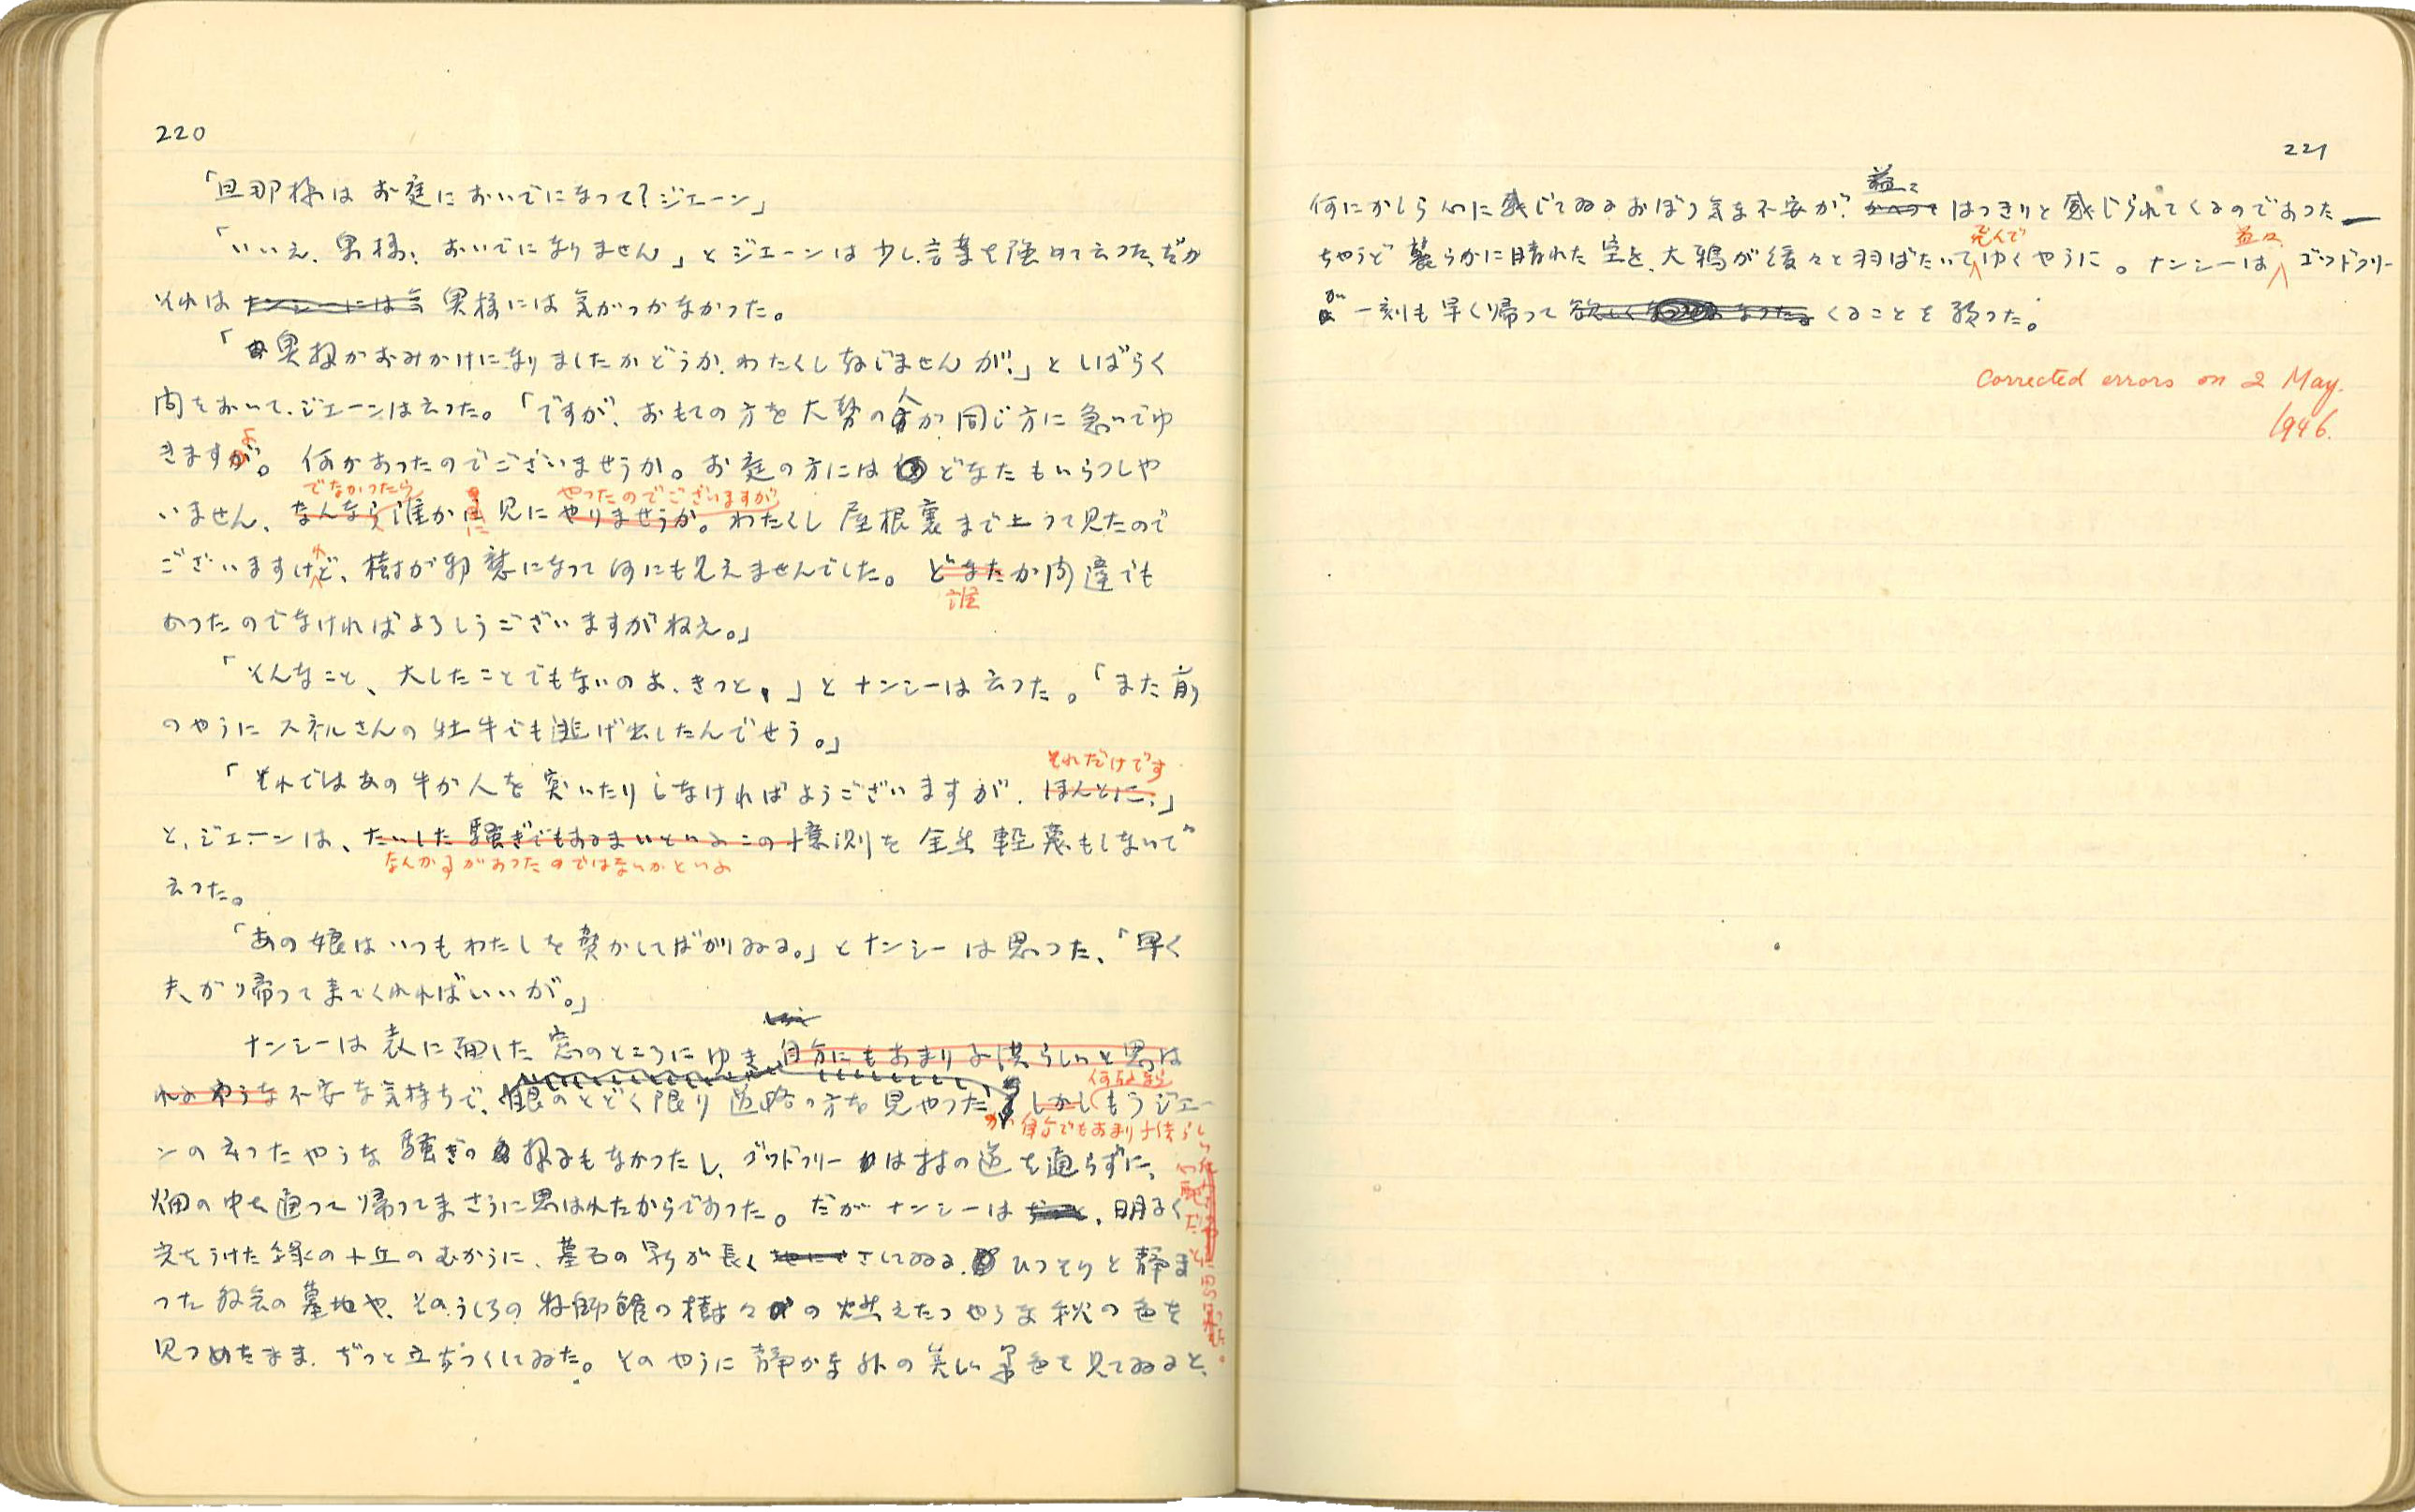 220
「旦那様は お庭に おいでになつて?ジェーン」
「いいえ、奥様、おいでになりません」とジェーンは少し言葉を強めて云つた、だが
それは ナンシーには気 奥様には 気がつかなかつた。
「奥様がおみかけになりましたかどうか、わたくし存じませんが、」と しばらく
間をおいて、ジェーンは云つた。「ですが、おもての方を大勢の人が同じ方に急いでゆ
きますよ。何かあつたのでございませうか。お庭の方には どなたもいらつしや
でなかつたら やつたのでございますが
いません、なんなら誰か 見に やりませうか。わたくし 屋根裏まで上つて見たので
ございますけれど、樹が邪魔になつて何にも見えませんでした。どなたか間違でも
誰
あつたのでなければよろしうございますがねえ。」
「そんなこと、大したことでもないのよ、きつと。」とナンシーは云つた。「また前
のやうに スネルさんの 牡牛でも逃げ出したんでせう。」
それだけです
「それではあの牛が人を突いたりしなければようございますが、ほんとに、」
と、ジェーンは、たいした騒ぎでもあるまいといふこの憶測を 全然 軽蔑もしないで
なんか事があつたのではないかといふ
云つた。
「あの娘は いつもわたしを驚かしてばかりゐる。」とナンシーは思つた、「早く
夫が帰つてきてくれればいいが。」
ナンシーは表に面した窓のところにゆき、自分にもあまり子供らしいと思は
れるやうな不安な気持ちで、眼のとどく限り 道路の方を見やつた
何故なら
しかし もうジェー
が 自分でもあまり子供らしい
心配だと思つた。
ンの云つたやうな騒ぎの様子もなかつたし、ゴツドフリーは村の道を通らずに、
畑の中を通つて帰つてきさうに思はれたからであつた。だが ナンシーは、明るく
光をうけた緑の小丘のむかうに、墓石の影が長く さしてゐる、ひつそりと静ま
つた教会の墓地や、そのうしろの牧師館の樹々の燃えたつやうな秋の色を
見つめたまま、ぢつと立ちつくしてゐた。そのやうに静かな外の美しい景色を見てゐると、
221
益々
何にかしら心に感じてゐるおぼろ気な不安が、かへつて はつきりと感じられてくるのであつた—
飛んで 益々
ちやうど麗らかに晴れた空を、大鴉が緩々と羽ばたいてゆくやうに。ナンシーは ゴツドフリー
が 一刻も早く帰つて 欲しくなつた。くることを願つた。
Corrected errors on 2 May.
1946.